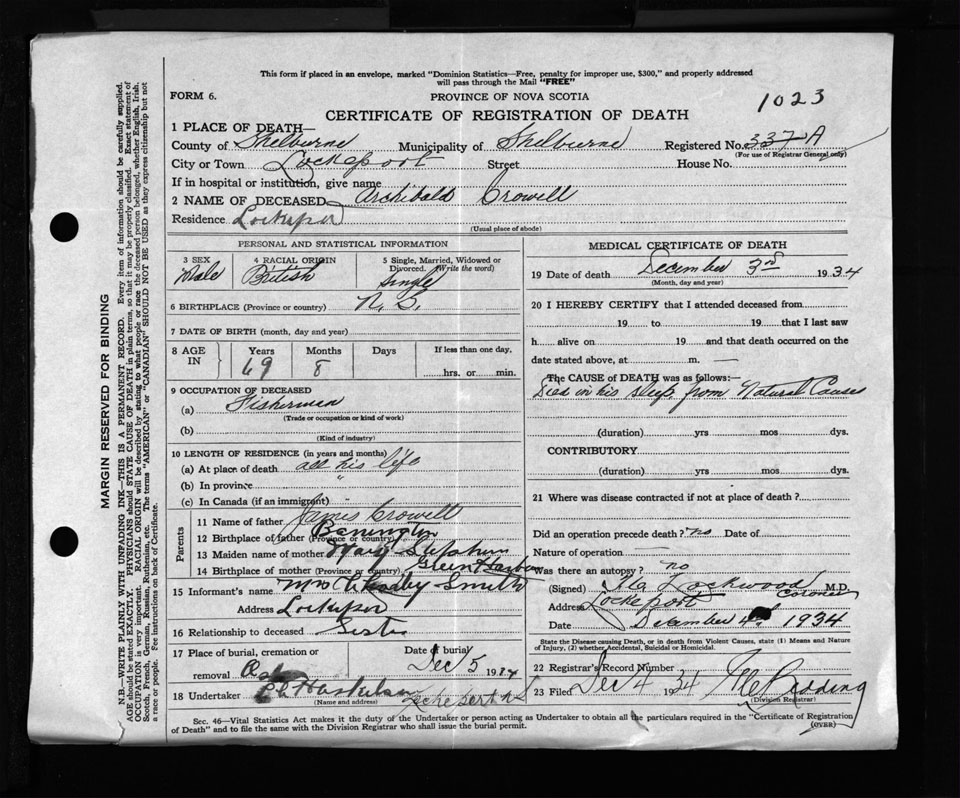 This form if placed in an envelope, marked "Dominion Statistics—Free, penalty for improper use, $300," and properly addressed
will pass through the Mail "FREE"
FORM 6.
PROVINCE OF NOVA SCOTIA
1023
CERTIFICATE OF REGISTRATION OF DEATH
1 PLACE OF DEATH—
County of Shelburne Municipality of Shelburne Registered No. 337 A
(For use of Registrar General only)
City or Town Lockeport Street House No.
If in hospital or institution, give name
2 NAME OF DECEASED Archibald Crowell
Residence Lockeport
(Usual place of abode)
PERSONAL AND STATISTICAL INFORMATION
3 SEX Male
4 RACIAL ORIGIN British
5 Single, Married, Widowed or Divorced. (Write the word) single
6 BIRTHPLACE (Province or country) N. S.
7 DATE OF BIRTH (month, day and year)
8 AGE IN Years 69 Months 8 Days If less than one day, hrs. or min.
9 OCCUPATION OF DECEASED
(a) Fisherman
(Trade or occupation or kind of work)
(b)
(Kind of industry)
10 LENGTH OF RESIDENCE (in years and months)
(a) At place of death all his life
(b) In province "
(c) In Canada (if an immigrant) "
Parents
11 Name of father James Crowell
12 Birthplace of father (Province or country) Barrington
13 Maiden name of mother Mary
14 Birthplace of mother (Province or country) Green Harbor
15 Informant's name Mrs Smith
Address Lockeport
16 Relationship to deceased Sister
17 Place of burial, cremation or removal
Date of burial Dec 5 1934
18 Undertaker
(Name and address) Lockeport N S
MEDICAL CERTIFICATE OF DEATH
19 Date of death December 3rd 1934
(Month, day and year)
20 I HEREBY CERTIFY that I attended deceased from
19 to 19 that I last saw
h alive on 19 and that death occurred on the
date stated above, at m. —
The CAUSE of DEATH was as follows:—
Died in his sleep from Natural Cause
(duration) yrs mos dys.
CONTRIBUTORY
(duration) yrs mos dys.
21 Where was disease contracted if not at place of death?
Did an operation precede death? no Date of
Nature of operation —
Was there an autopsy? no
(Signed) Lockwood M.D.
Coroner
Address Lockeport
Date December 4 1934
State the Disease causing Death, or in death from Violent Causes, state (1) Means and Nature
of Injury, (2) whether Accidental, Suicidal or Homicidal.
22 Registrar's Record Number
23 Filed Dec 4 1934
(Division Registrar)
Sec. 46—Vital Statistics Act makes it the duty of the Undertaker or person acting as Undertaker to obtain all the particulars required in the "Certificate of Registration
of Death" and to file the same with the Division Registrar who shall issue the burial permit.
(OVER)
MARGIN RESERVED FOR BINDING
N.B.—WRITE PLAINLY WITH UNFADING INK—THIS IS A PERMANENT RECORD. Every item of information should be carefully supplied.
AGE should be stated EXACTLY. PHYSICIANS should STATE CAUSE OF DEATH in plain terms, so that it may be properly classified. Exact statement of
OCCUPATION is very important. RACIAL ORIGIN will be described by stating to what people or race the deceased person belonged, whether English, Irish,
Scotch, French, German, Russian, Ruthenian, etc. The terms "AMERICAN" or "CANADIAN" SHOULD NOT BE USED as they express citizenship but not
a race or people. See instructions on back of Certificate.